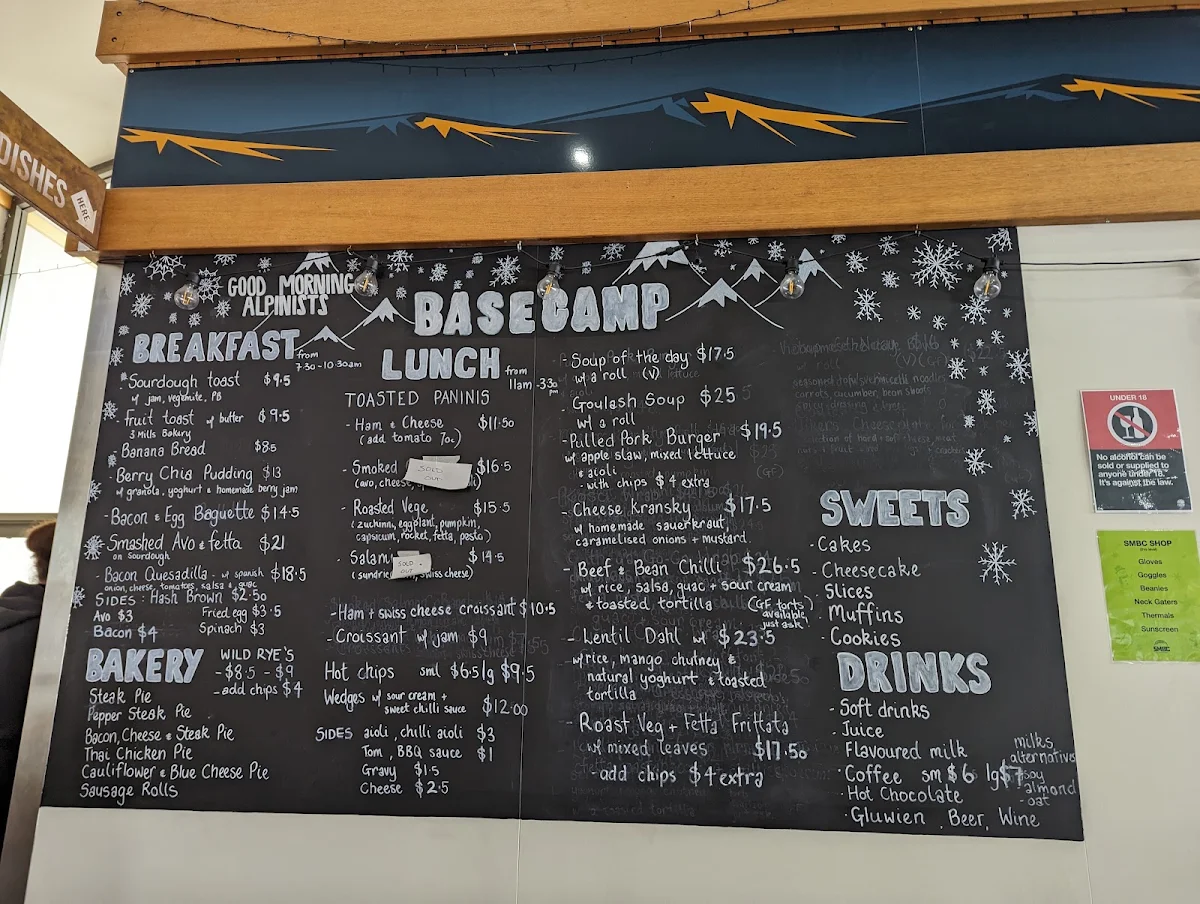 DISHES
HERE
GOOD MORNING
ALPINISTS
BASECAMP
BREAKFAST
from
7:30-10:30am
Sourdough toast $9.5
w/ jam, vegemite, PB
Fruit toast w/ butter $9.5
3 Mills Bakery
Banana Bread $8.5
Berry Chia Pudding $13
w/ granola, yoghurt & homemade berry jam
- Bacon & Egg Baguette $14.5
Smashed Avo & fetta $21
on sourdough
- Bacon Quesadilla - w/ spanish $18.5
onion, cheese, tomatoes, salsa & guac
SIDES: Hash Brown $2.50
Avo $3 Fried egg $3.5
Bacon $4 Spinach $3
BAKERY
WILD RYE'S
- $8.5 - $9
- add chips $4
Steak Pie
Pepper Steak Pie
Bacon, Cheese & Steak Pie
Thai Chicken Pie
Cauliflower & Blue Cheese Pie
Sausage Rolls
LUNCH
from
11am - 330
pm
TOASTED PANINIS
- Ham & Cheese $11.50
(add tomato 70c)
- Smoked $16.5
SOLD
OUT
(avo, chees
- Roasted Vege $15.5
(zuchinni, eggplant, pumpkin,
capsicum, rocket, fetta, pesto)
- Salami $14.5
SOLD
OUT
(sundrie swiss cheese)
- Ham & swiss cheese croissant $10.5
- Croissant w/ jam $9
Hot chips sml $6.5 lg $9.5
Wedges w/ sour cream +
sweet chilli sauce $12.00
SIDES aioli, chilli aioli $3
Tom, BBQ sauce $1
Gravy $1.5
Cheese $2.5
- Soup of the day $17.5
w/ a roll (V)
- Goulash Soup $25
w/ a roll
- Pulled Pork Burger $19.5
w/ apple slaw, mixed lettuce
& aioli
- with chips $4 extra
- Cheese Kransky $17.5
w/ homemade sauerkraut,
caramelised onions + mustard.
- Beef & Bean Chilli $26.5
w/ rice, salsa, guac + sour cream
& toasted tortilla (GF torts
available,
just ask)
- Lentil Dahl w/ $23.5
w/ rice, mango chutney &
natural yoghurt & toasted
tortilla
- Roast Veg + Fetta Frittata
w/ mixed leaves $17.50
- add chips $4 extra
SWEETS
- Cakes
- Cheesecake
- Slices
- Muffins
- Cookies
DRINKS
- Soft drinks
- Juice
- Flavoured milk
- Coffee sm $6 lg $7
- Hot Chocolate
- Gluwien, Beer, Wine
milks
alternatives
- soy
- almond
- oat
UNDER 18
No alcohol can be
sold or supplied to
anyone under 18.
It's against the law.
SMBC SHOP
Gloves
Goggles
Beanies
Neck Gaters
Thermals
Sunscreen
SMBC